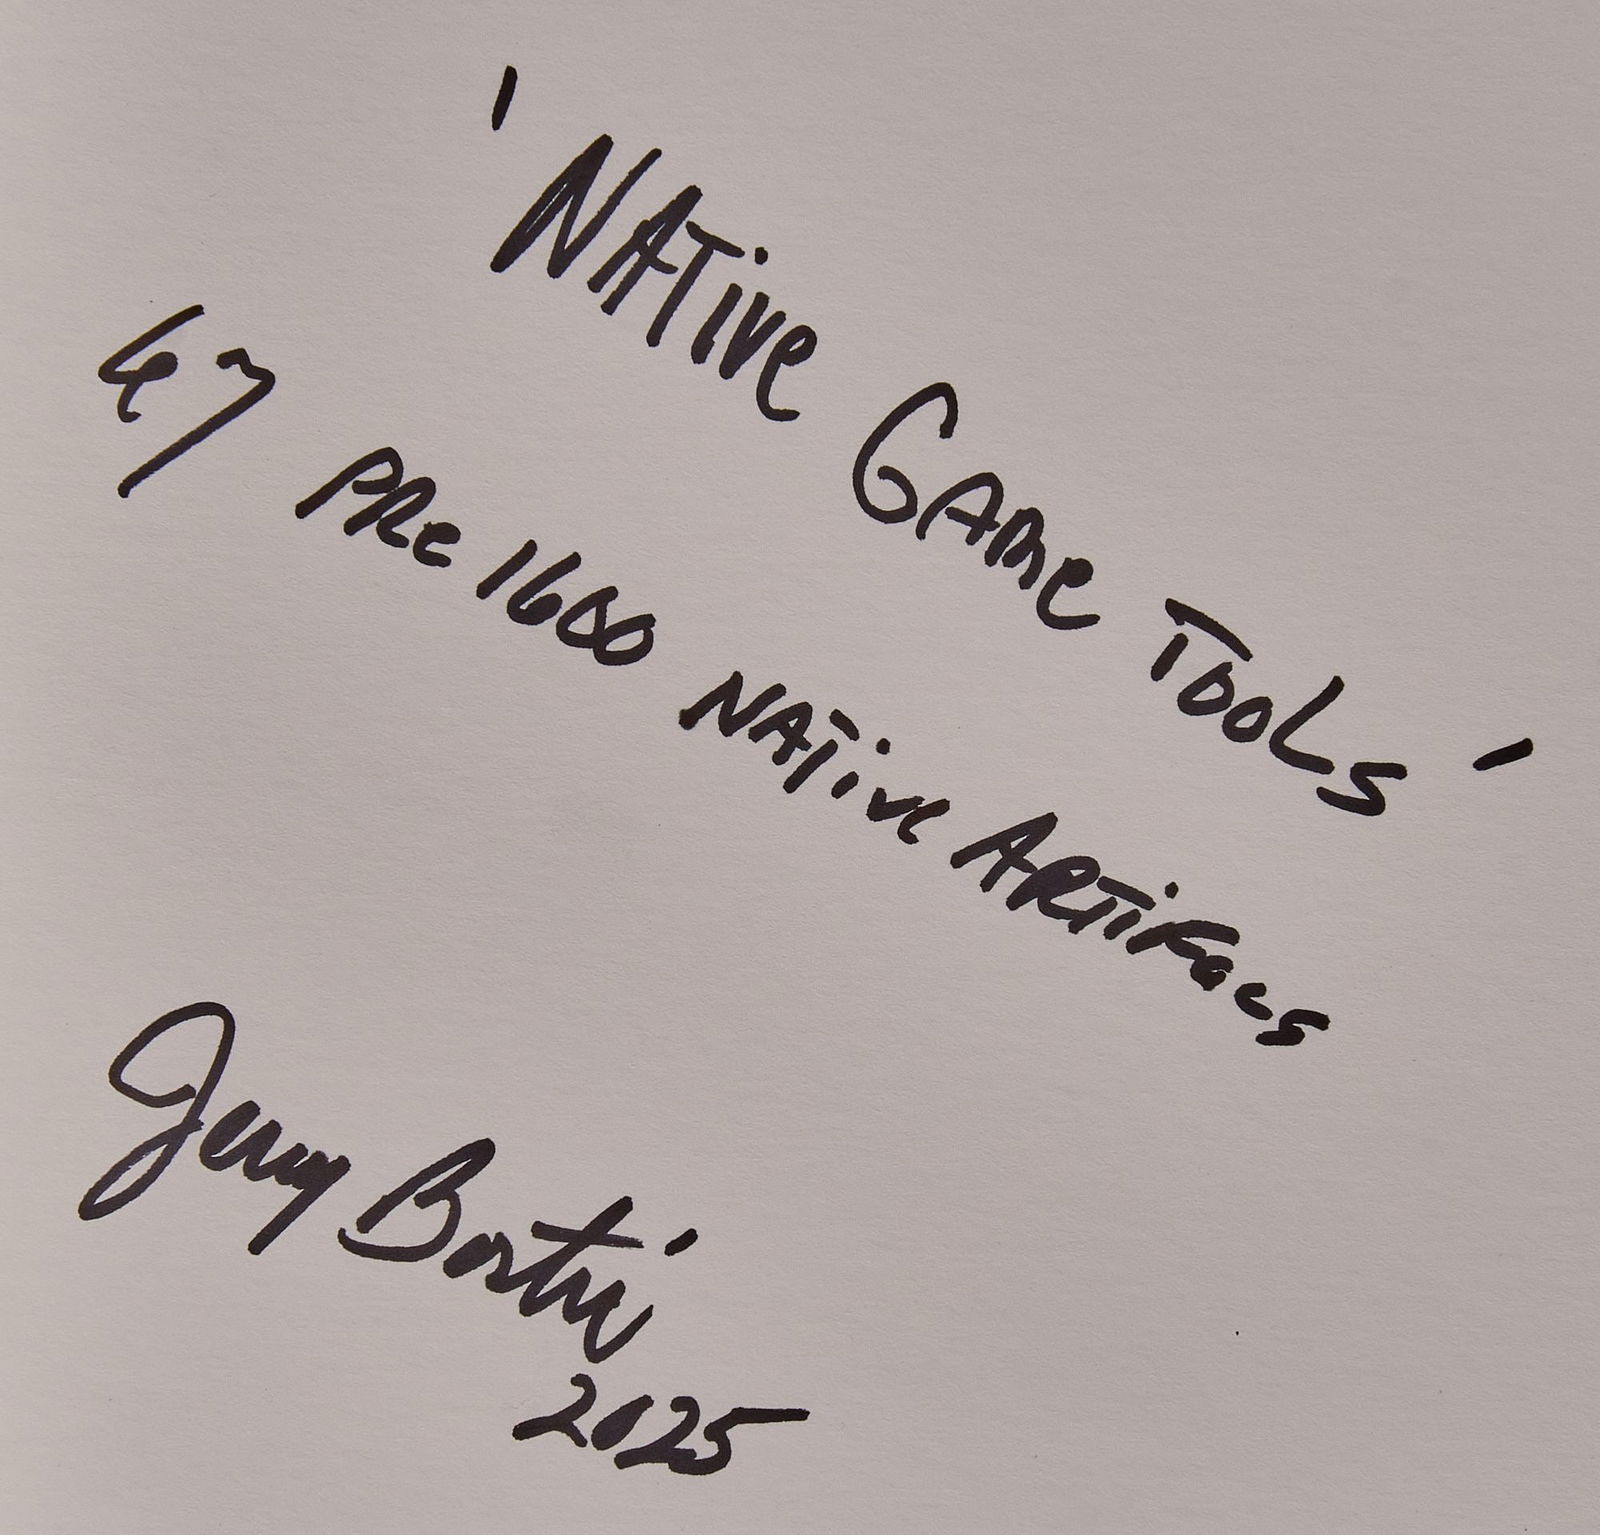 'NATive GAme TOOLS'
47 PRe 1600 NATive ARTiFacs
Jerry
2025